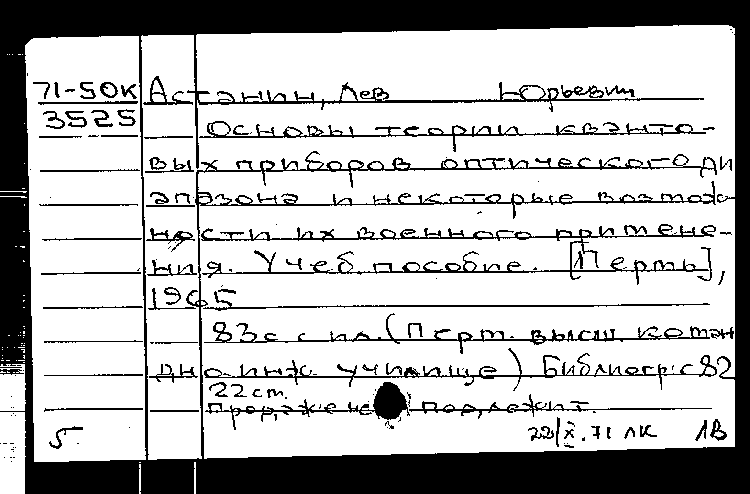 71-50К Астанин, Лев Юрьевич
3525
Основы теории кванто-
вых приборов оптического ди
апазона и некоторые возмож
ности их военного примене-
ния. Учеб. пособие. [Пермь],
1965
83с. с ил. (Перм. высш. коман
дно инж. училище) Библиогр: с 82
22 см.
Продаже не подлежит.
5 22/X.71 ЛК 1В